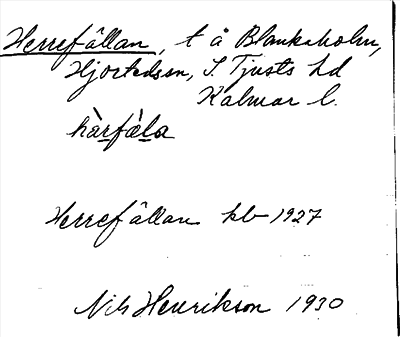 Herrefällan, t å Blankaholm,
Hjorteds sn, S. Tjusts hd
Kalmar l.
hàrfä̀la
Herrefällan kb 1927
Nils Henrikson 1930